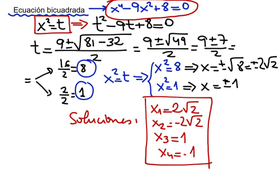 Ecuación bicuadrada x⁴-9x²+8=0
x²=t → t²-9t+8=0
t = (9±√(81-32))/2 = (9±√49)/2 = (9±7)/2 =
= 16/2=8 x²=t ⇒ x²=8 → x=±√8=±2√2
2/2=1 x²=1 → x=±1
Soluciones: x₁=2√2
x₂=-2√2
x₃=1
x₄=-1